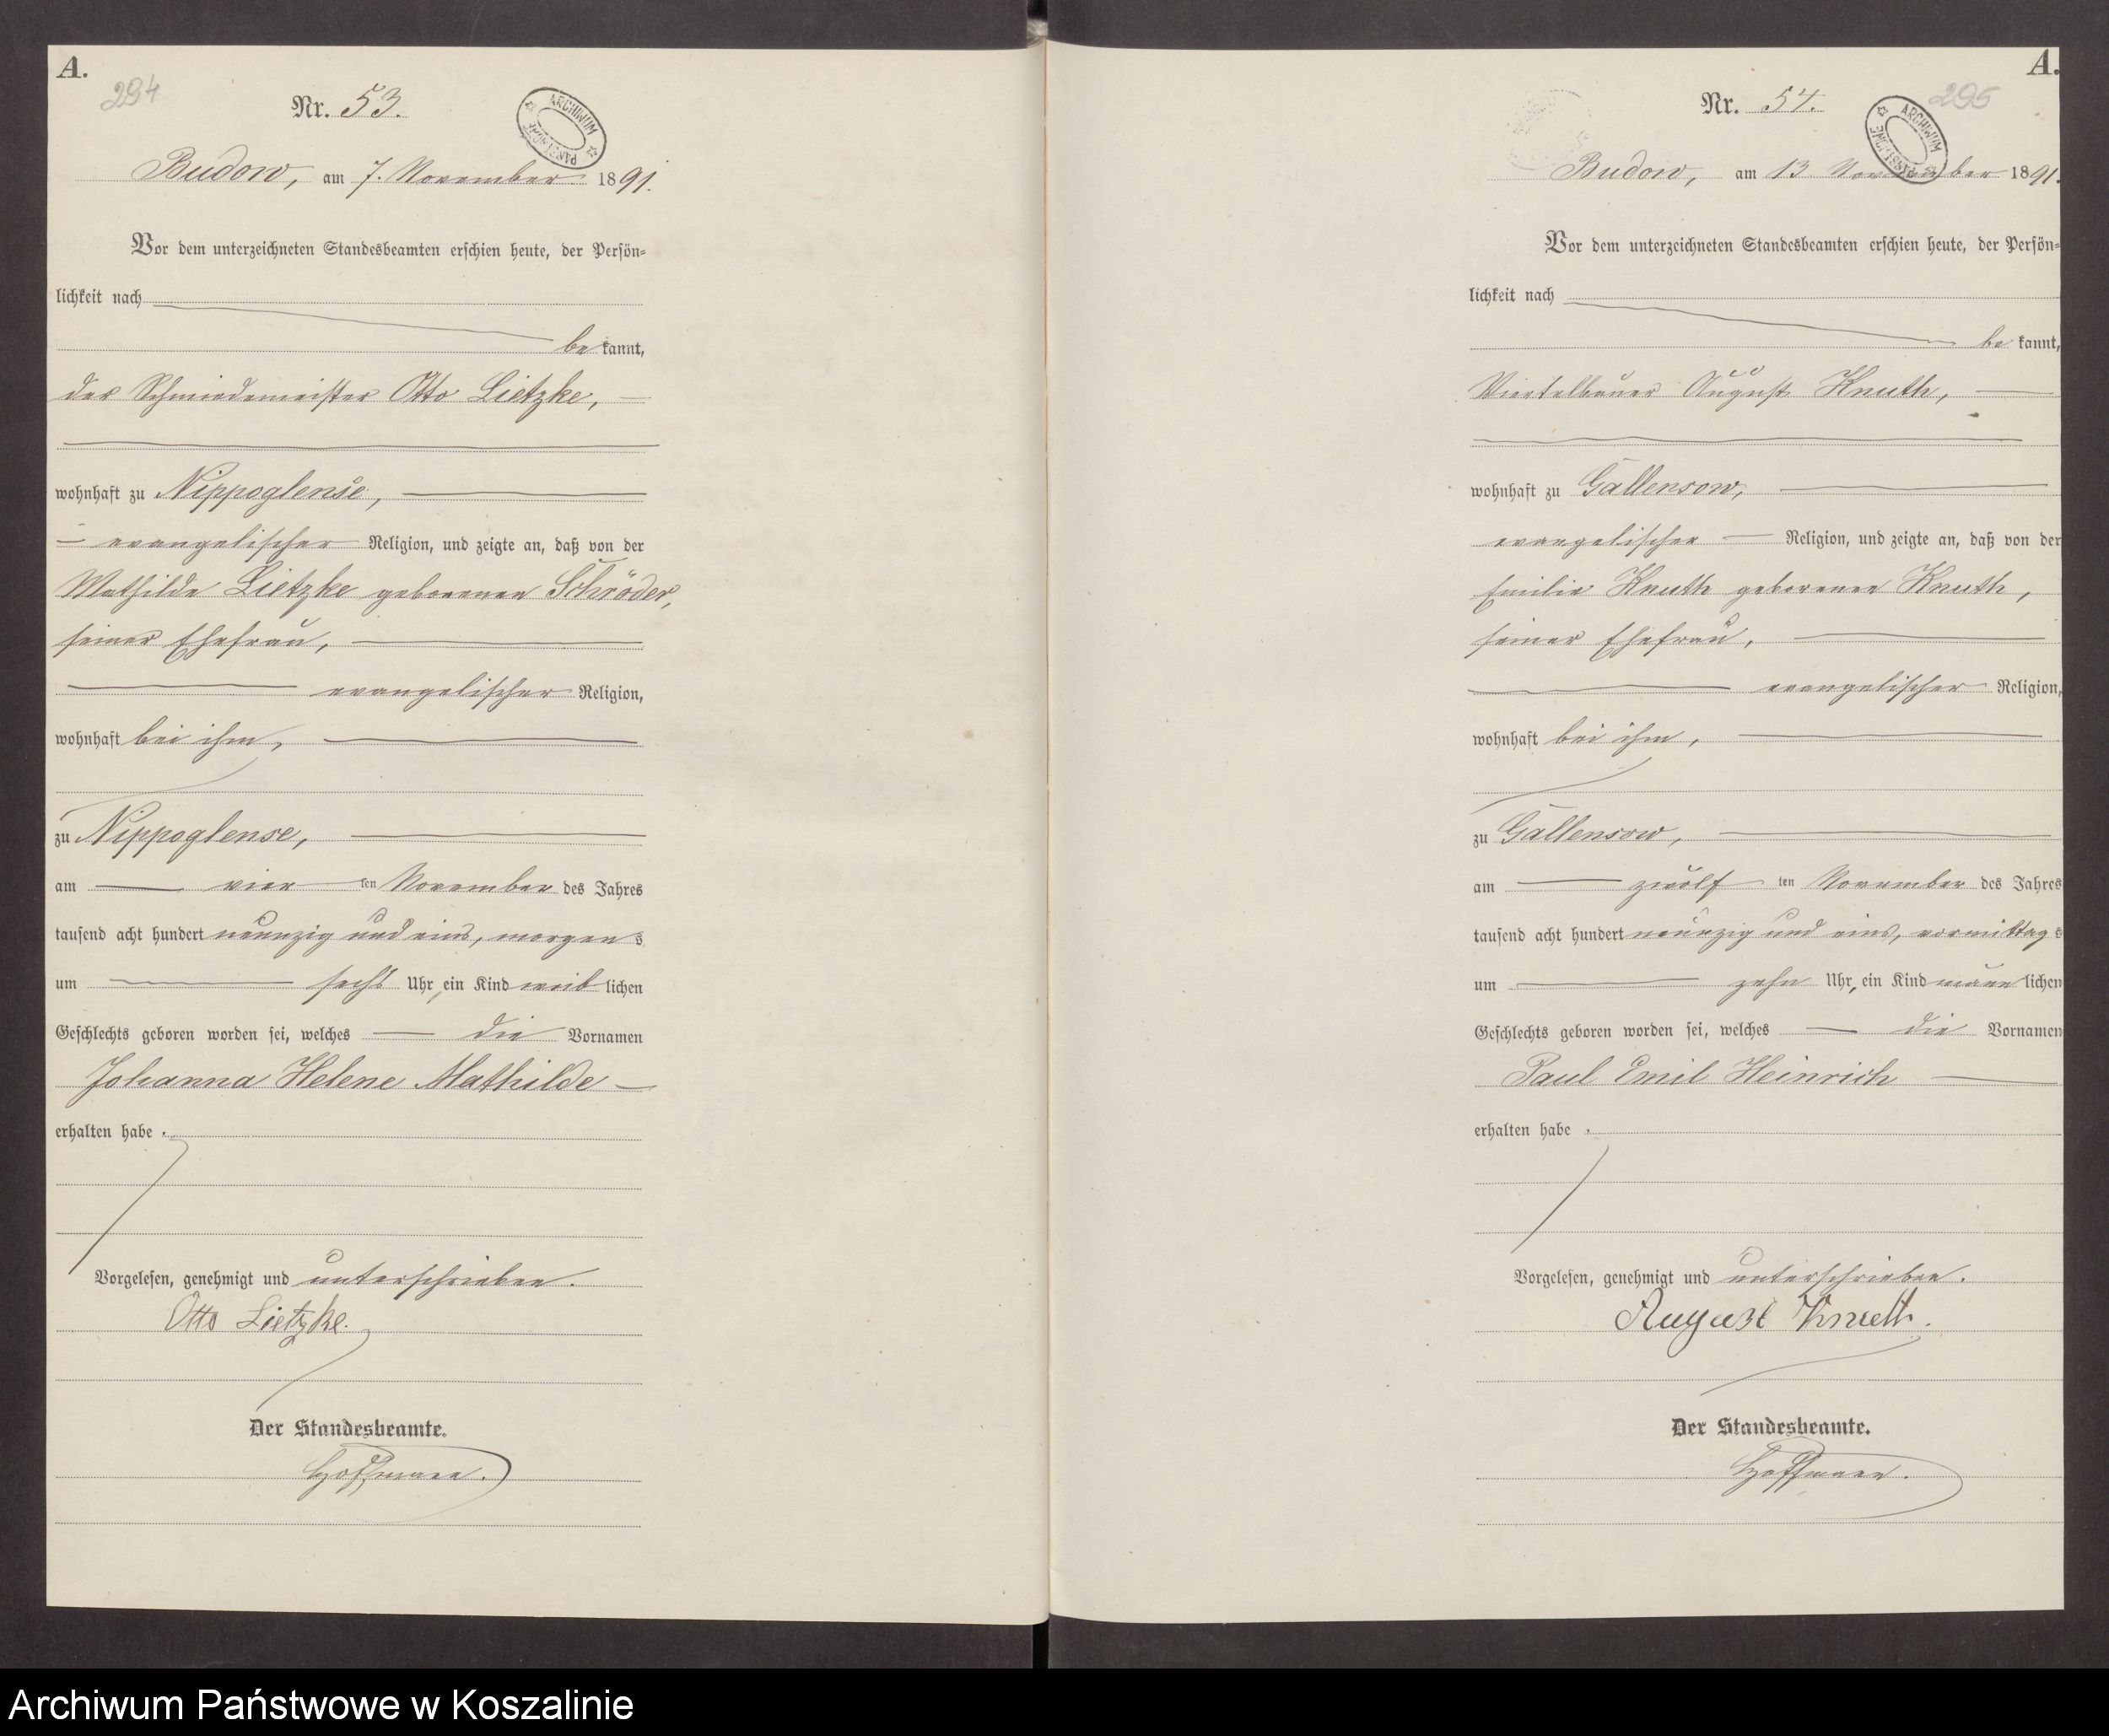 A.
294
Nr. 53.
ARCHIWUM PAŃSTWOWE
Budow, am 7. November 1891.
Vor dem unterzeichneten Standesbeamten erschien heute, der Persön-
lichkeit nach
be kannt,
der Schmiedemeister Otto Lietzke,
wohnhaft zu Nippoglense,
evangelischer Religion, und zeigte an, daß von der
Mathilde Lietzke geborenen Schröder,
seiner Ehefrau,
evangelischer Religion,
wohnhaft bei ihm,
zu Nippoglense,
am vier ten November des Jahres
tausend acht hundert neunzig und eins, morgens
um sechs Uhr, ein Kind weib lichen
Geschlechts geboren worden sei, welches die Vornamen
Johanna Helene Mathilde
erhalten habe.
Vorgelesen, genehmigt und unterschrieben.
Otto Lietzke.
Der Standesbeamte.
Hoffmann.
A.
295
Nr. 54.
ARCHIWUM PAŃSTWOWE
Budow, am 13 November 1891.
Vor dem unterzeichneten Standesbeamten erschien heute, der Persön-
lichkeit nach
be kannt,
Viertelbauer August Knuth,
wohnhaft zu Gallensow,
evangelischer Religion, und zeigte an, daß von der
Emilie Knuth geborenen Knuth,
seiner Ehefrau,
evangelischer Religion,
wohnhaft bei ihm,
zu Gallensow,
am zwölf ten November des Jahres
tausend acht hundert neunzig und eins, vormittags
um zehn Uhr, ein Kind männ lichen
Geschlechts geboren worden sei, welches die Vornamen
Paul Emil Heinrich
erhalten habe.
Vorgelesen, genehmigt und unterschrieben.
August Knueth.
Der Standesbeamte.
Hoffmann.
Archiwum Państwowe w Koszalinie